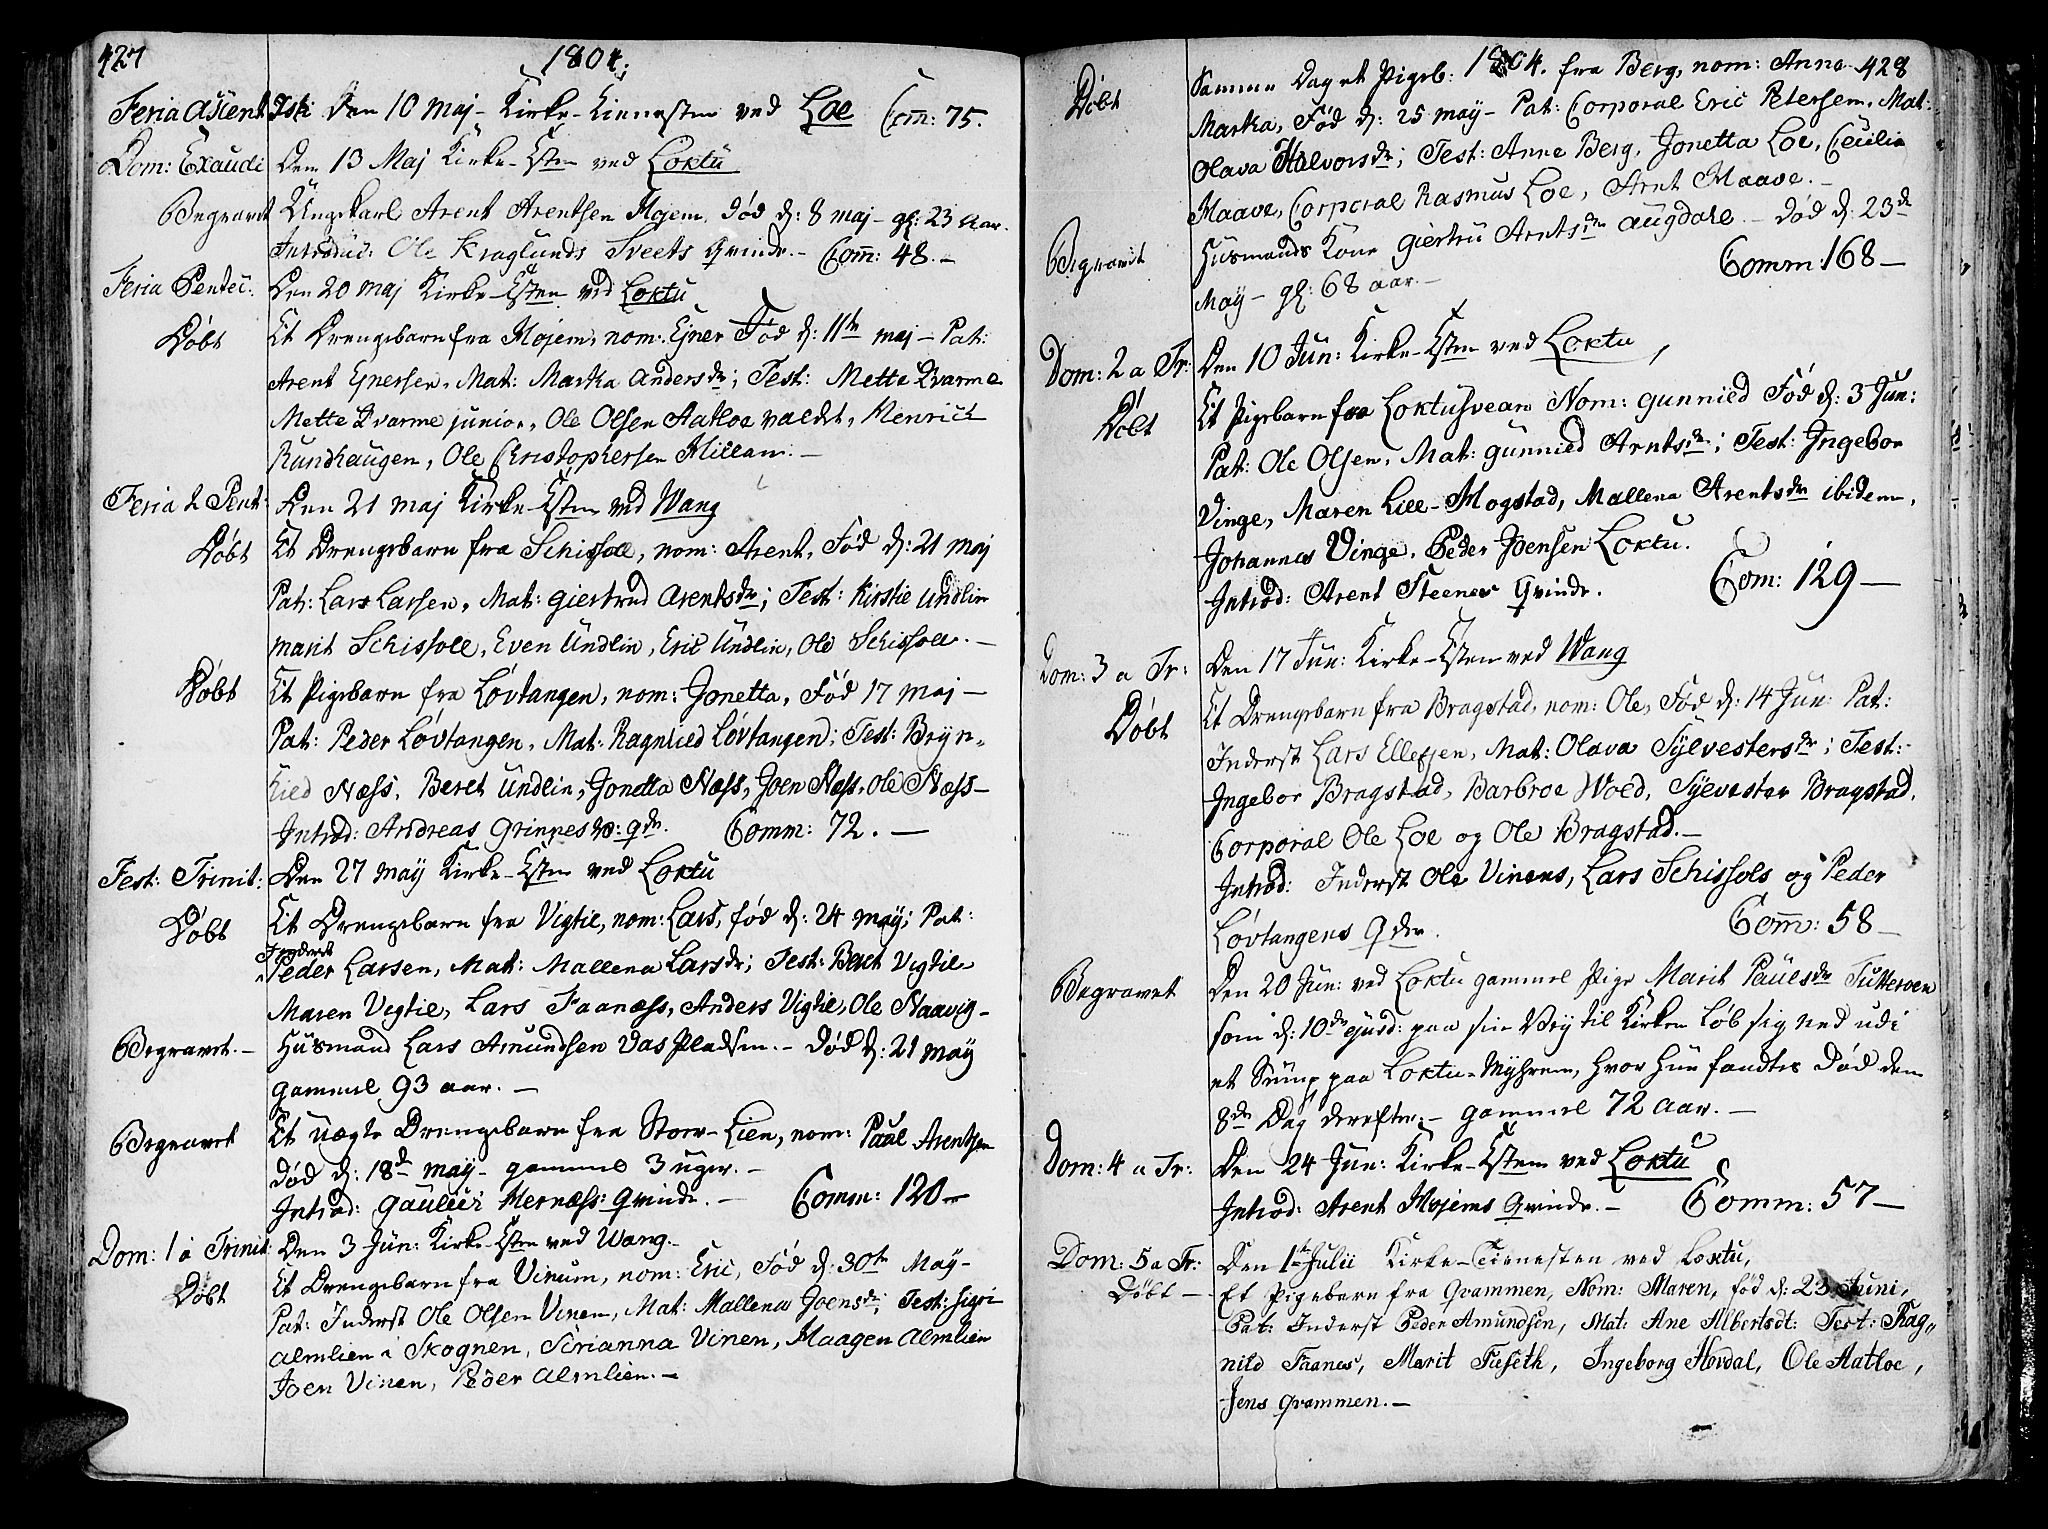 427
1804.
Feria Ascent. Xsti Den 10 Maj - Kirke-Tienesten ved Loe Com̄: 75.
Dom: Exaudi Den 13 Maj Kirke-Tsten ved Loktu
Begravet Ungekarl Arent Arentsen Mojem, død d: 8 maj - gl: 23 Aar.
Introdud: Ole Kraglunds Sveets Qvinde. - Com̄: 48. -
Feria Pentec: Den 20 maj Kirke-Tsten ved Loktu
Døbt Et Drengebarn fra Mojem, nom: Ejner Fød d: 11te maj - Pat:
Arent Ejnersen, Mat: Marta Andersdr; Test: Mette Qvarme
Mette Qvarme junior, Ole Olsen Aatloe valdet, Henrich
Rundhaugen, Ole Christophersen Millam. -
Feria 2 Pent: Den 21 maj Kirke-Tsten ved Wang
Døbt Et Drengebarn fra Schissoll, nom: Arent, Fød d: 21 maj
Pat: Lars Larsen, Mat: giertrud Arentsdr; Test: Kirstie Undlin
marit Schissoll, Even Undlin, Eric Undlin, Ole Schissoll. -
Døbt Et Pigebarn fra Løvtangen, nom: Jonetta, Fød 17 maj -
Pat: Peder Løvtangen, Mat: Ragnlied Løvtangen; Test: Bryn-
hied Næss, Beret Undlin, Jonetta Næss, Joen Næss, Ole Næss -
Introd: Andreas Grinnes qdr. Comm: 72. -
Fest: Trinit: Den 27 maÿ Kirke-Tsten ved Loktu
Døbt Et Drengebarn fra Vigtil, nom: Lars, fød d: 24 maÿ; Pat:
Inderst
Peder Larsen, Mat: Mallena Larsdr; Test: Beret Vigtil
Maren Vigtil, Lars Faanæss, Anders Vigtil, Ole Naavig -
Begravet. - Husmand Lars Amundsen Vas Pladsen. - død d: 21 maÿ
gammel 93 aar. -
Begravet Et uægte Drengebarn fra Store-Lien, nom: Paul Arentsen
død d: 18de maÿ - gammel 3 uger. -
Introd: Gaulier Hernæss: Qvinde. - Comm: 120 -
Dom: 1 a Trinit: Den 3 Jun: Kirke-Tsten ved Wang -
Døbt Et Drengebarn fra Vinum, nom: Eric, Fød d: 30te Maÿ -
Pat: Inderst Ole Olsen Vinen, Mat: Mallena Joensdr; Test: Sigri
Almlien i Skognen, Sirianna Vinen, Haagen Almlien
Joen Vinen, Peder Almlien. -
1804. 428
Døbt Samme Dag et Pigeb: fra Berg, nom: Anne
Marta, Fød d: 25 maÿ - Pat: Corporal Eric Petersen, Mat:
Olava Halvorsdr; Test: Anne Berg, Jonetta Loe, Cecilia
Maave, Corporal Rasmus Loe, Arnt Maave. -
Begravet Husmands Kone giertru Arntsdr augdahl - død d: 23de
Maÿ - gl: 68 aar. - Comm: 168 -
Dom: 2 a Tr: Den 10 Jun: Kirke-Tsten ved Loktu,
Døbt Et Pigebarn fra Loktusvean Nom: gunnied Fød d: 3 Jun:
Pat: Ole Olsen, Mat: gunnied Arntsdr; Test: Ingebor
Vinge, Maren Lill-Mogstad, Mallena Arentsdr ibidem,
Johannes Vinge, Peder Joensen Loktu.
Introd: Arent Steenes Qvinde. Com: 129 -
Dom: 3 a Tr: Den 17 Jun: Kirke-Tsten ved Wang
Døbt Et Drengebarn fra Bragstad, nom: Ole, Fød d: 14 Jun: Pat:
Inderst Lars Ellefsen, Mat: Olava Sylvestersdr; Test:
Ingebor Bragstad, Barbroe Wold, Sylvester Bragstad,
Corporal Ole Loe og Ole Bragstad. -
Introd: Inderst Ole Vinens, Lars Schissols og Peder
Løvtangens Qder. Com̄: 58 -
Begravet Den 20 Jun: ved Loktu gammel Pige Marit Paulsdr Tutteroen
som d: 10de ejusd: paa sin Vej til Kirken løb sig ned udi
et Sump paa Loktu-Myhren, hvor hun fandtes død den
8de Dag derefter. - gammel 72 aar. -
Dom: 4 a Tr: Den 24 Jun: Kirke-Tsten ved Loktu
Introd: Arent Mojems Qvinde. - Comm: 57 -
Dom: 5 a Tr: Den 1te Julii Kirke-Tienesten ved Loktu,
Døbt - Et Pigebarn fra Qvammen, Nom: Maren, fød d: 23 Juni,
Pat: Inderst Peder Amundsen, Mat: Ane Albertsdt: Test: Rag„
nild Faanes, Marit Fieseth, Ingeborg Hovdal, Ole Aatloe,
Jens Qvammen. -